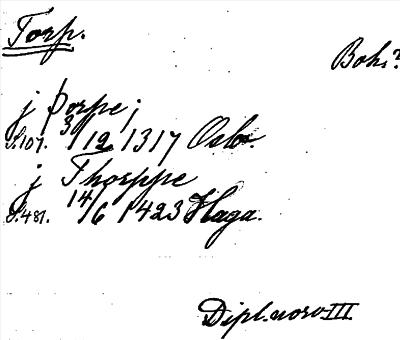 Torp.
Bohs?
j þorpe;
S.107. 3/12 1317 Oslo.
j Thorppe
S.481. 14/6 1423 Haga.
Dipl. norv III